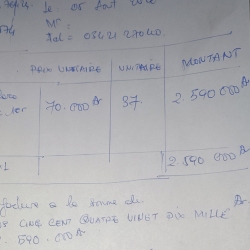 le 05
Mr
Tel = 03421 27040.
PRIX UNITAIRE UNITAIRE MONTANT
70.000 Ar 37 2.590 000 Ar
2.590 000 Ar
facture a la somme de
CINQ CENT QUATRE VINGT DIX MILLE Ar
590.000 Ar